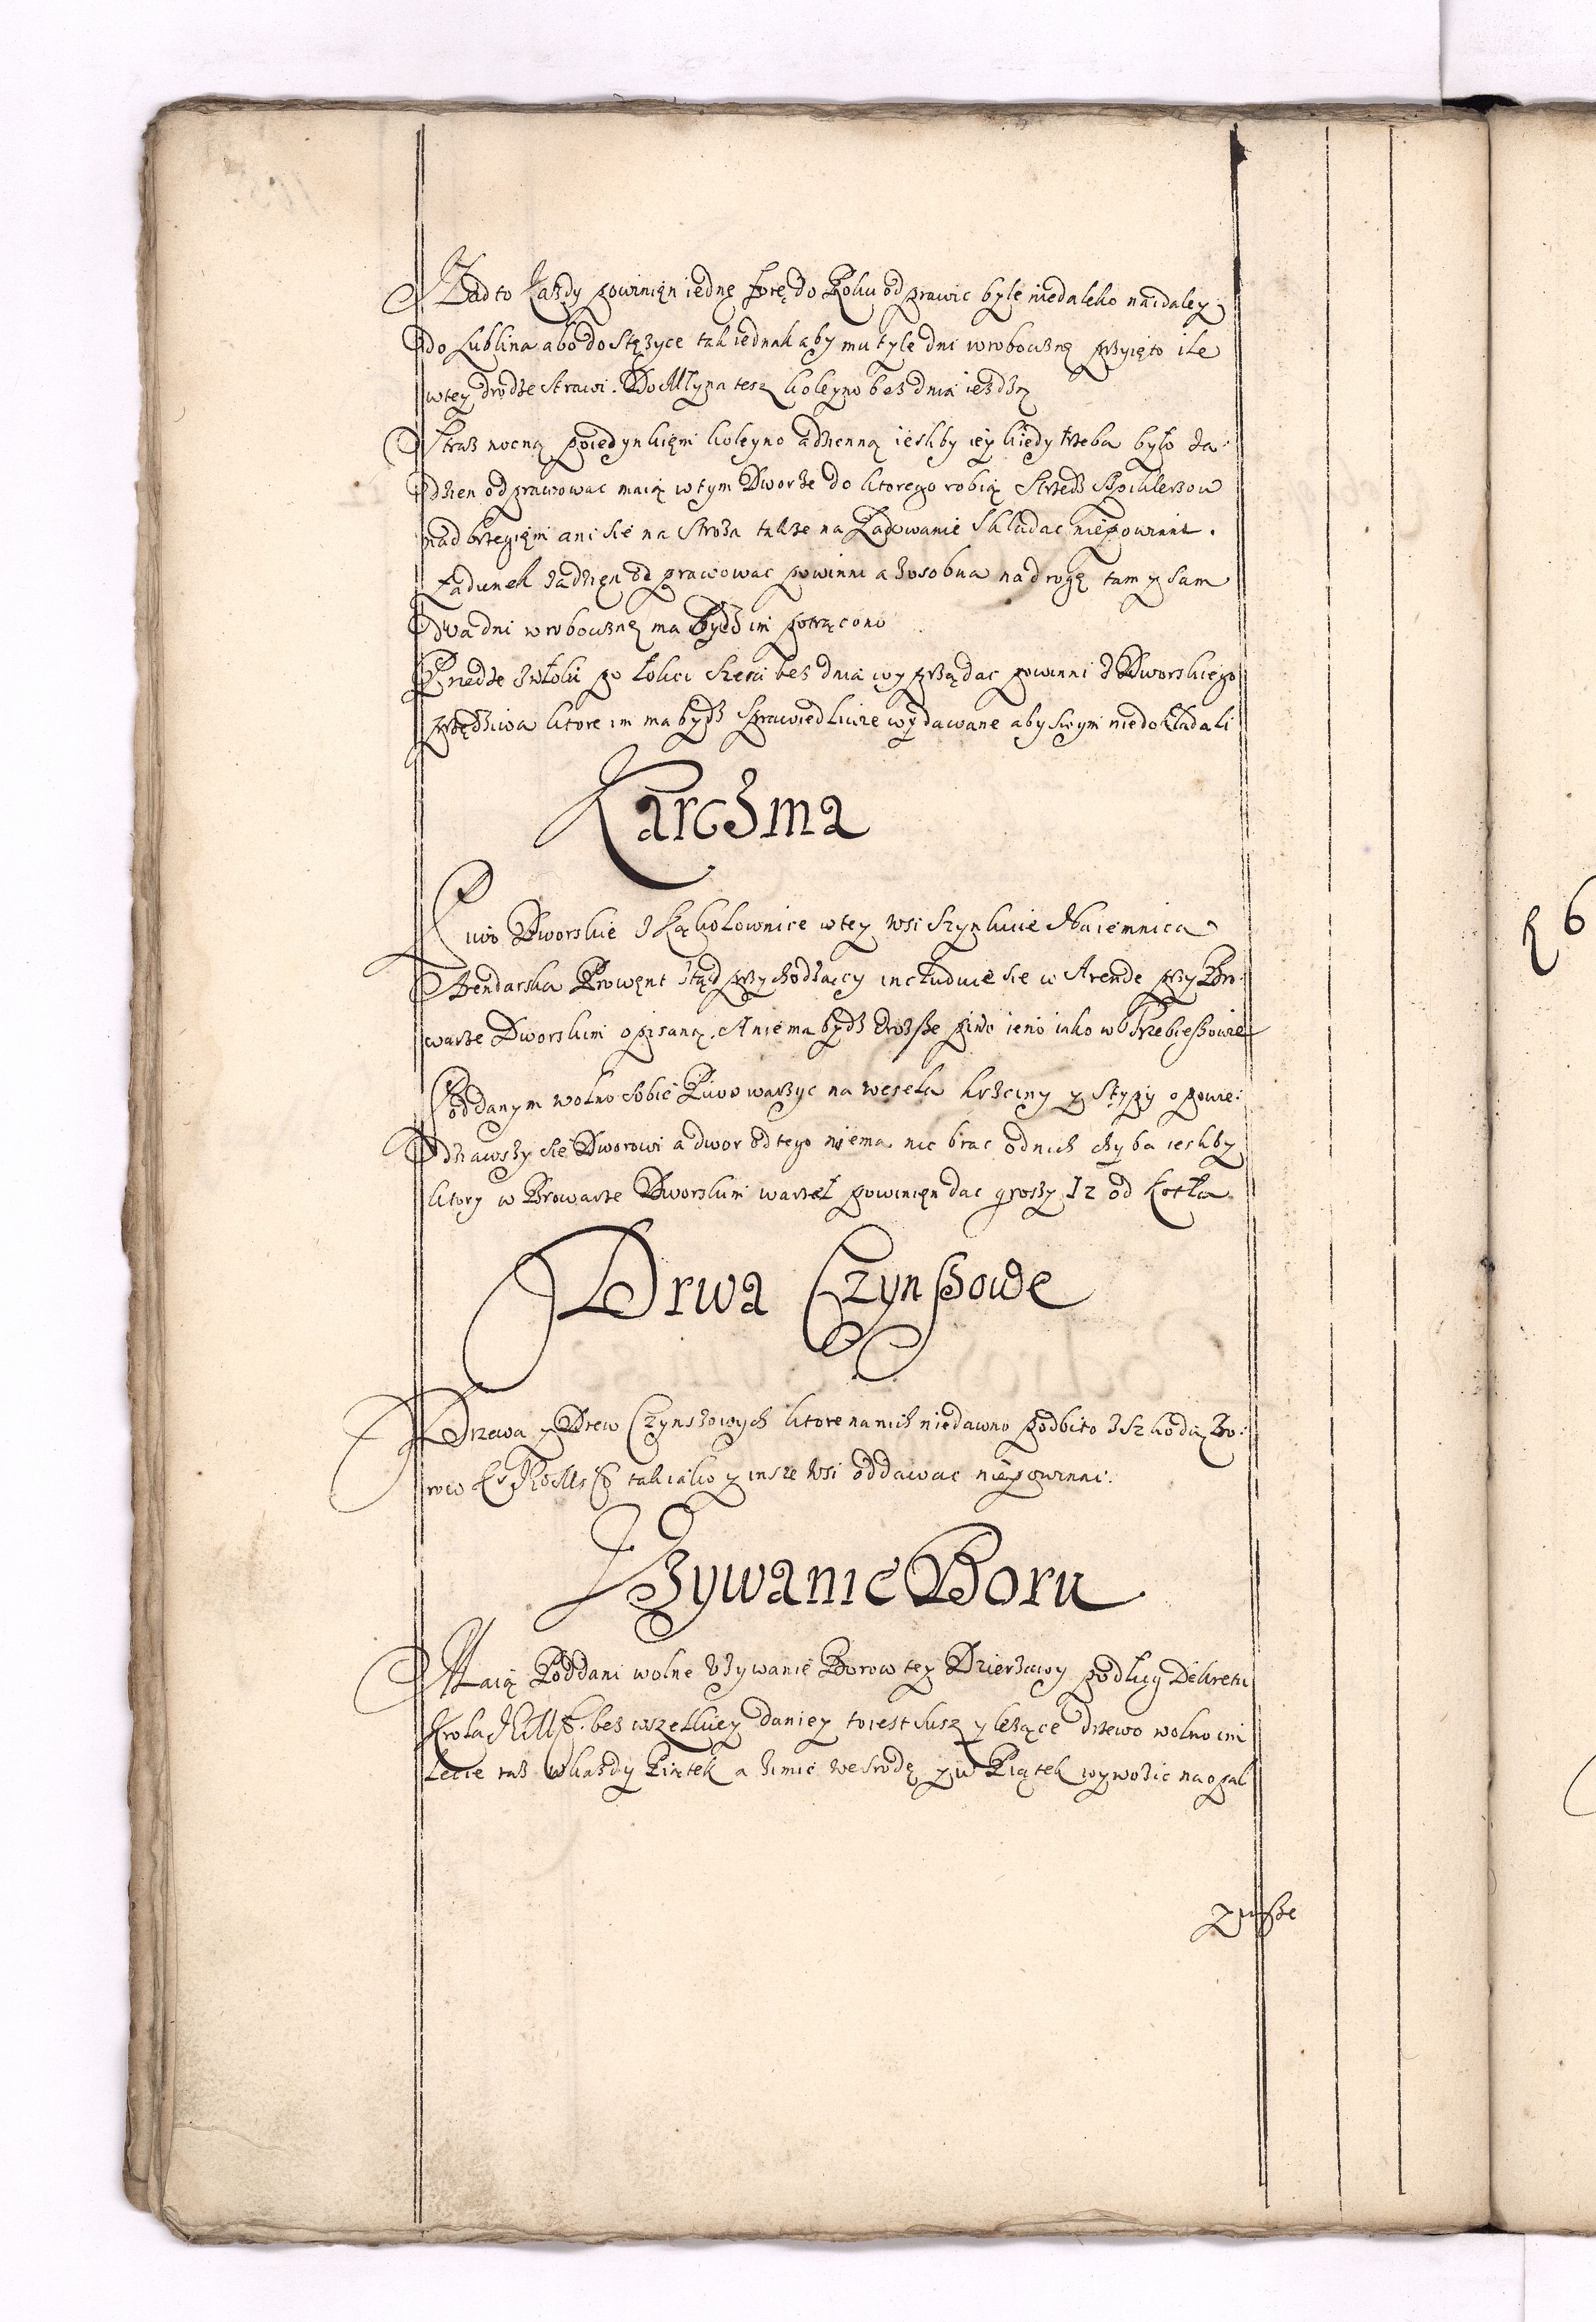 Nadto Kazdy powinięn iednę forę do Roku odprawic byle niedaleko naidaley
do Lublina abo do Stęzyce tak iednak aby mu tyle dni w roboczne przyięto ile
w tey drodze strawi. Do Młyna tesz koleyno bez dnia iezdzą
Straz nocną poiedynkięm koleyno a dzenną iesliby iey kiedy trzeba było za
dzen odprawowac maią w tym Dworze do ktorego robią Strzedz Spichlerzow
nad brzegięm ani sie na Stroza takze na Ładowanie składac niepowinni.
Ładunek za dzięn odprawowac powinni a zosobna na drogę tam y sam
dwa dni w roboczne ma bydz im potrącono
Przedze z włoki po łokci szesci bez dnia wyprządac powinni z Dworskiego
przędziwa ktore im ma bydz sprawiedliwie wydawane aby swym niedokładali
Karczma
Piwo Dworskie z Kąkolownice w tey wsi szynkuie
Arendarska Prowęnt ztąd przychodzący includuie sie w Arende przy Bro:
warze Dworskim opisaną. A nie ma bydz drozsze piwo ieno iako w Trzebieszowie
Poddanym wolno sobie Piwo warzyc na wesela krzciny y Stypy opowie:
dziawszy sie Dworowi a dwor od tego niema nic brac od nich chyba iesliby
ktory w Browarze Dworskim warzeł powinięn dac groszy 12 od Kotła
Drwa Czynszowe
Drzewa y Drew Czynszowych ktore na nich niedawno podbito z szkodą Bo:
row Kr JKoMsci tak iako y insze wsi oddawac niepowinni.
Vzywanie Boru
Maią Poddani wolne vzywanie Borow tey Dzierzawy podług Dekretu
Krola JKMsci. bez wszelkiey daniey to iest susz y lezące drzewo wolno im
Lecie raz w kazdy Piątek a zimie we srodę y w Piątek wywozic na opał
y insze